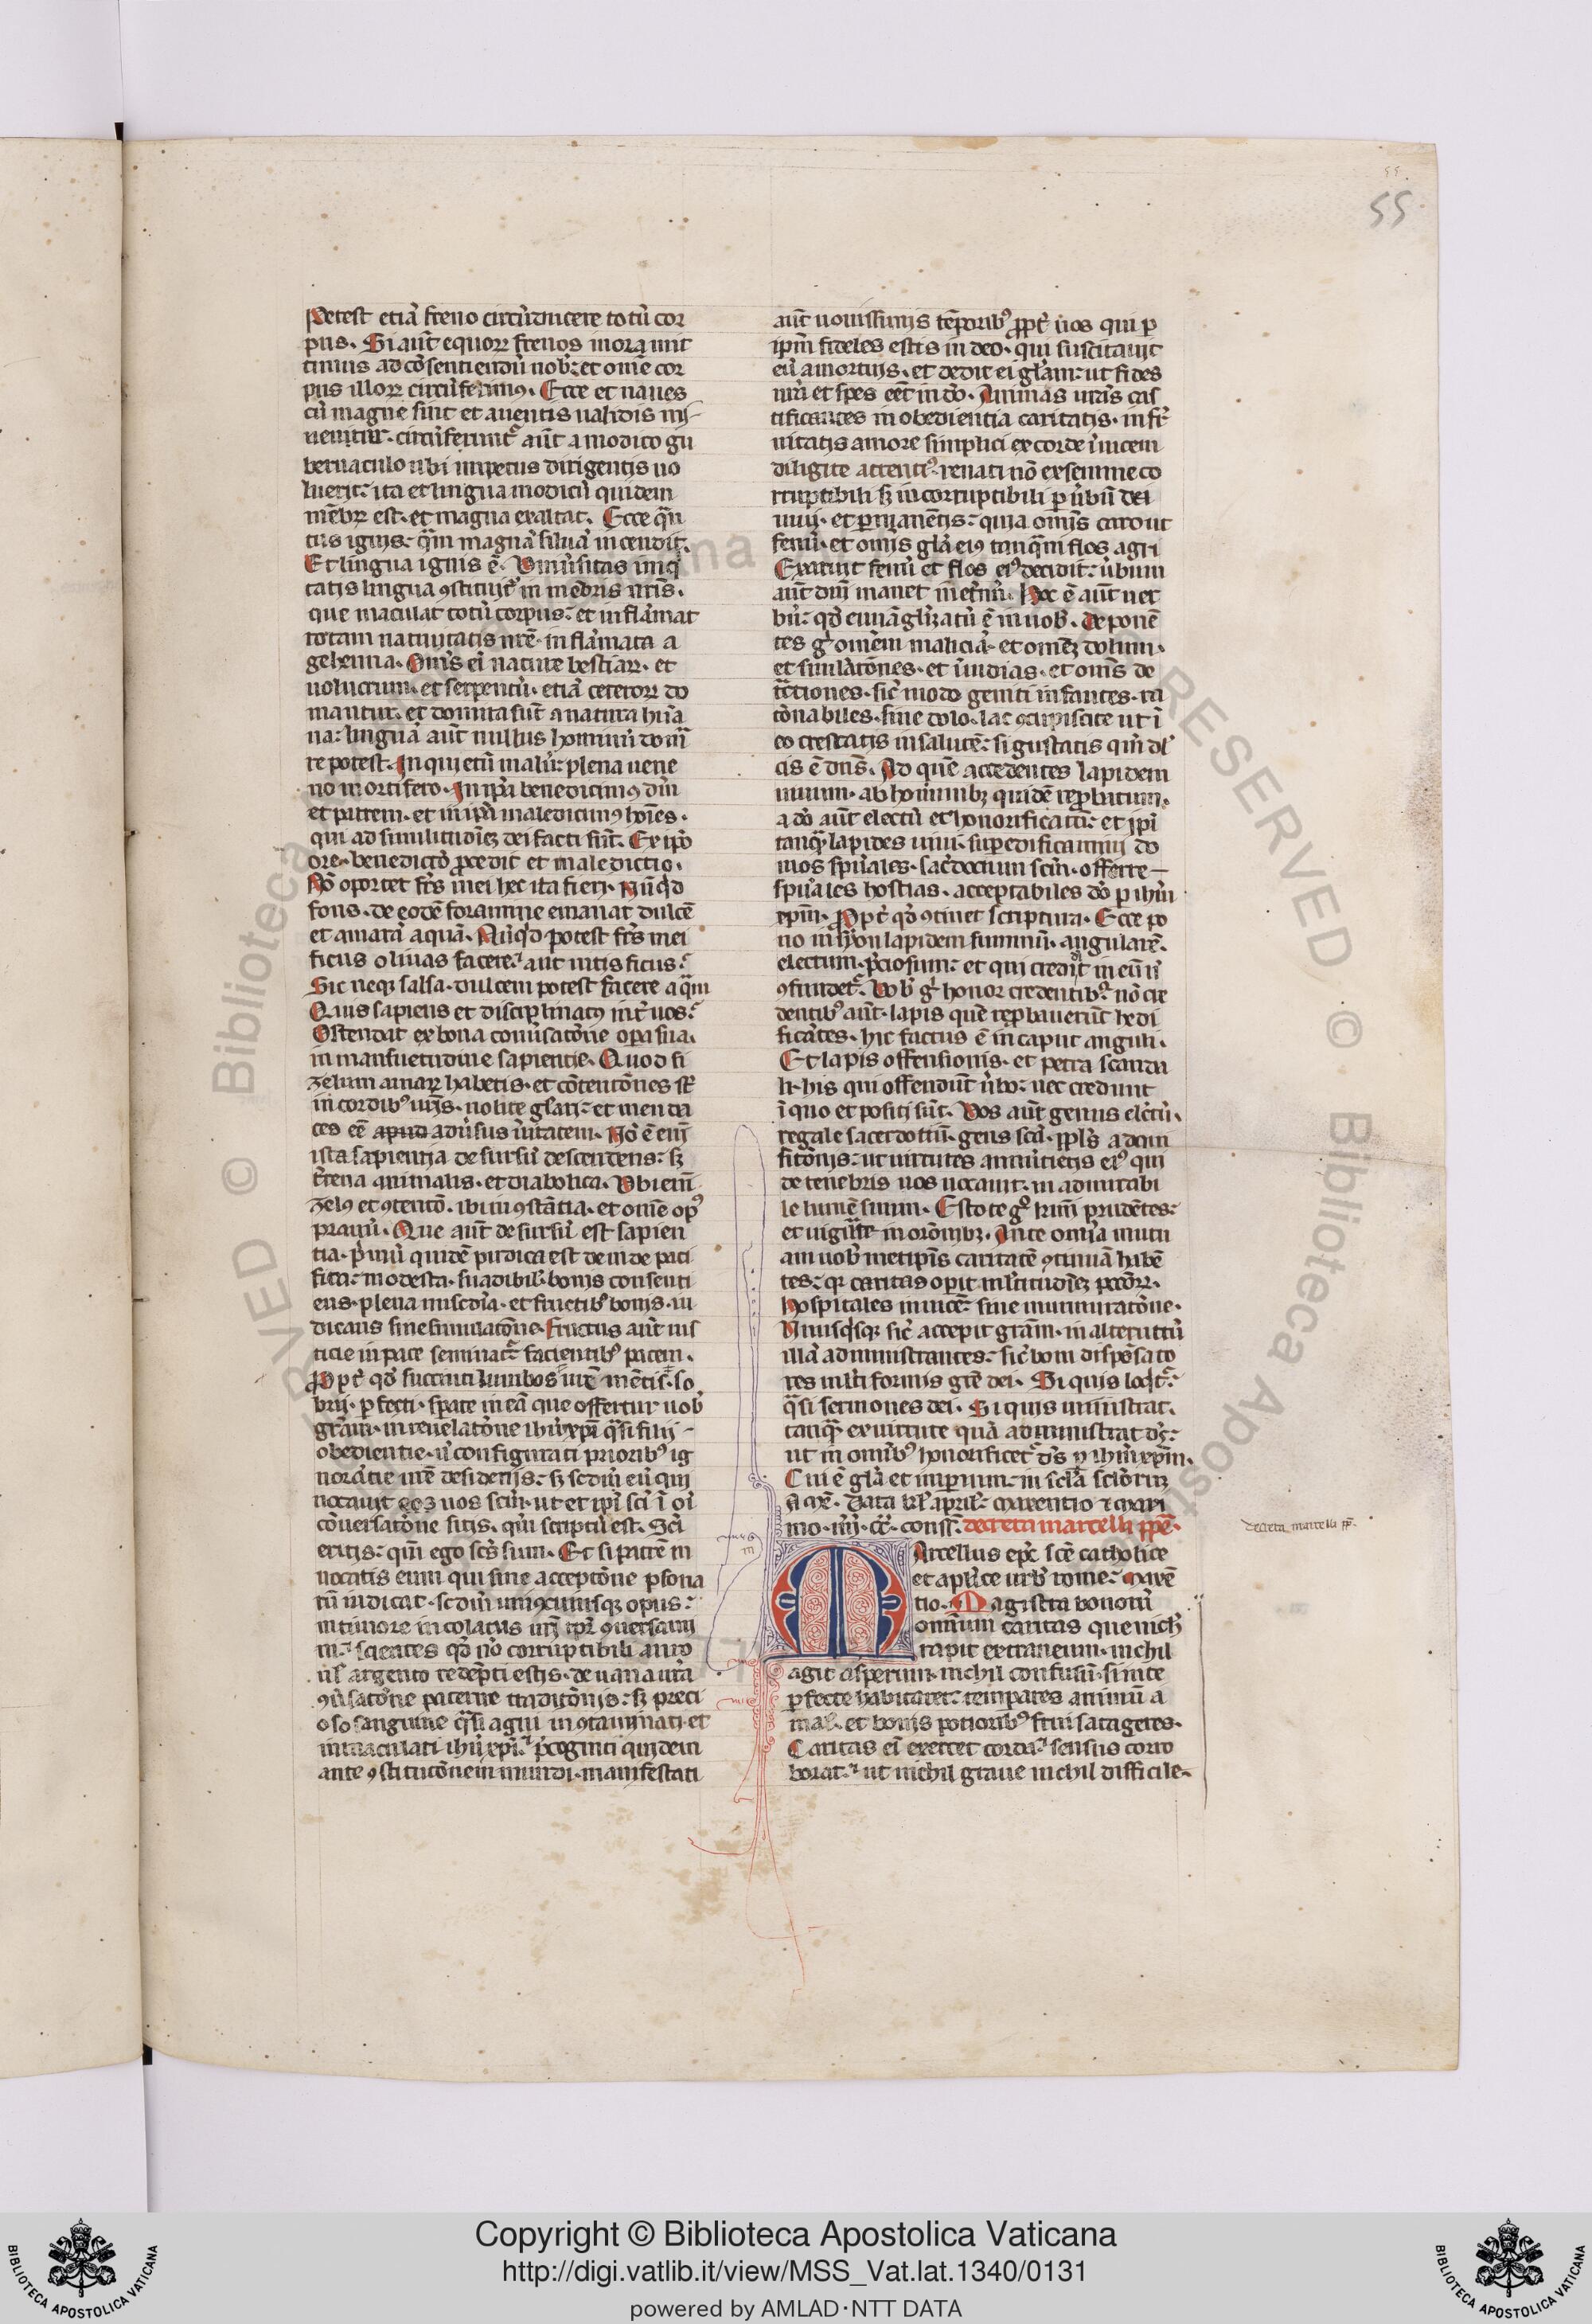 55
55
Potest etiã freno circũducere totũ cor
pus. Si aut̃ equoꝝ frenos in ora mit
timus ad cõsentiendũ nob̃: et om̃e cor
pus illoꝝ circũferimꝰ. Ecce et naues
cũ magne sint et a uentis ualidis mi-
nentur. circũferunt᷑ aut̃ a modico gu
bernaculo ubi impetus dirigentis uo
luerit: ita et lingua modicũ quidem
mẽbꝝ est. et magna exaltat. Ecce q̃n
tus ignis: q̃m magnã siluã incendit.
Et lingua ignis ẽ. Uniũsitas iniq̃
tatis lingua ꝯstituit᷑ in mẽbris nr̃is.
que maculat totũ corpus: et inflãmat
rotam natiuitatis nrẽ. inflãmata a
gehenna. Om̃is ei natura bestiaꝝ. et
uolucrum. et serpentũ. etiã ceteroꝝ do
mantur. et domita sũt a natura hũa
na: linguã aut̃ nullus hominũ domã
re potest. Inquietũ malũ: plena uene
no mortifero. In ip̃a benedicimꝰ dm̃
et patrem. et in ip̃a maledicimꝰ hoĩes.
qui ad similitudĩeꝫ dei facti sũt. Ex ip̃o
ore. benedictõ ꝓcedit et maledictio.
Nõ oportet fr̃s mei hec ita fieri. Nũq̃d
fons. de eodẽ foramine emanat dulcẽ
et amarã aquã. Nũq̃d potest fr̃s mei
ficus oliuas facere: aut uitis ficus:
Sic neqꝫ salsa. dulcem potest facere aq̃m
Quis sapiens et disciplinatꝰ int̃ uos:
Ostendat ex bona conũsatõne oꝑa sua.
in mansuetudine sapientie. Quod si
zelum amaꝝ habetis. et cõtentões st̃
in cordibꝰ ur̃is. nolite gl̃ari: et menda
ces eẽ apud adũsus ũitatem. Nõ ẽ em̃
ista sapientia de sursũ descendens: sꝫ
t̃rena animalis. et diabolica. Ubi em̃
zelꝰ et ꝯtentõ. ibi inꝯstãtia. et om̃e opꝰ
prauũ. Que aut̃ de sursũ est sapien
tia. p̃mũ quidẽ pudica est deinde paci
fica: modesta. suadibil̃. bonis consenti
ens. plena miscd̃ia. et fructibꝰ bonis. iu
dicans sine simulatõne. Fructus aut̃ ius
ticie in pace seminat᷑ facientibꝰ pacem.
Ꝓpt̃ qd̃ succincti lumbos ur̃e mẽtis. so
brij. ꝑfecti. sperate in eã que offertur uob̃
gr̃am. in reuelatõne ihũ xp̃i q̃si filij-
obedientie. ñ configurati prioribꝰ ig
norãtie ur̃e desiderijs: sꝫ scd̃m eũ qui
uocauit eos uos scm̃. ut et ip̃i sc̃i ĩ oĩ
cõuersatõne sitis. qm̃ scriptũ est. Sc̃i
eritis: qm̃ ego sc̃s sum. Et si patrẽ in
uocatis eum qui sine acceptõne ꝑsona
rũ iudicat. scd̃m uniꝰcuiusqꝫ opus:
in timore incolatus ur̃i tꝑe ꝯuersami
ni: scientes qd̃ nõ corruptibili auro
ul̃ argento redẽpti estis. de uana ur̃a
ꝯũsatõne paterne traditõnis: sꝫ preci
oso sanguine q̃si agni inꝯtaminati. et
inmaculati ihũ xp̃i. p̃cogniti quidem
ante ꝯstitutõnem mundi. manifestati
aut̃ nouissimis tẽporibꝰ ꝓpt̃ uos qui ꝑ
ip̃m fideles estis in deo. qui suscitauit
eũ a mortuis. et dedit ei gl̃am: ut fides
nr̃a et spes eet̃ in dõ. Animas ur̃as cas
tificantes in obedientia caritatis. in fr̃
nitatis amore simplici ex corde inuicem
diligite attentiꝰ. renati nõ ex semine co
rruptibili sꝫ incorruptibili ꝑ ũbũ dei
uiui. et ꝑmanẽtis: quia om̃is caro ut
fenũ. et om̃is gl̃a eiꝰ tanq̃m flos agri
Exaruit fenũ et flos eiꝰ decidit: ũbum
aut̃ dñi manet in et̃nũ. Hoc ẽ aut̃ uer
bũ: qd̃ euuãgl̃izatũ ẽ in uob̃. Deponẽ
tes g̃ om̃em maliciã. et om̃eꝫ dolum.
et simulatões. et ĩuidias. et om̃s de
tc̃tiones. sic̃ modo geniti infantes. ra
tõnabiles. sine dolo. lac ꝯcupiscite ut ĩ
eo crescatis in salutẽ: si gustatis qm̃ dul
cis ẽ dñs. Ad quẽ accedentes lapidem
uiuum. ab hominibꝫ quidẽ reꝓbatum.
a dõ aut̃ electũ et honorificatũ: et ip̃i
tanq̃ lapides uiui. suꝑedificamini do
mos sp̃uales. sac̃docium scm̃. offerre-
sp̃uales hostias. acceptabiles dõ ꝑ ihm̃
xp̃m. Ꝓpt̃ qd̃ ꝯtinet scriptura. Ecce po
no in syon lapidem summũ. angularẽ.
electum. p̃ciosum: et qui credit in eũ ñ
ꝯfundet᷑. Uob̃ g̃ honor credentibꝰ: nõ cre
dentibꝰ aut̃. lapis quẽ reꝓbauerũt hedi
ficãtes. hic factus ẽ in caput anguli.
Et lapis offensionis. et petra scanda
li. his qui offendũt ũbo: nec credunt
ĩ quo et positi sũt. Uos aut̃ genus elc̃tũ.
regale sacerdotiũ. gens sc̃a. ppl̃s adqui
sitõnis: ut uirtutes annũcietis eiꝰ qui
de tenebris uos uocauit. in admirabi
le lumẽ suum. Estote g̃ hum̃i prudẽtes:
et uigilate in orõnibꝫ. Ante omnia mutu
am uob̃ metip̃is caritatẽ ꝯtinuã habẽ
tes: qꝛ caritas oꝑit ml̃titudĩeꝫ pcc̃oꝝ.
Hospitales inuicẽ: sine murmuratõne.
Unusq̃sqꝫ sic̃ accepit gr̃am. in alterutrũ
illã administrantes: sic̃ boni dispẽsato
res ml̃tiformis gr̃e dei. Si quis loq̃t᷑.
q̃si sermones dei. Si quis ministrat.
tanq̃ ex uirtute quã administrat ds̃:
ut in omĩbꝰ honorificet᷑ ds̃ ꝑ ihm̃ xp̃m.
Cui ẽ gl̃a et imperium: in scl̃a scl̃oruꝫ
Amẽ. Data kl̃. april̃: maxentio ⁊ maxi
mo. iiij. c̃c̃. conss̃. decreta marcelli ppẽ.
decreta marcelli pp̃.
m
Marcellus epc̃ scẽ catholice
et apl̃ice urb̃ rome: maxẽ
tio. Magistra bonorũ
omnium caritas que nich̃
rapit extraneum. nichil
agit asperum. nichil confusũ. si in te
ꝑfecte habitaret: temperares animũ a
mal̃. et bonis potioribꝰ frui satageres.
Caritas ei exercet corda: sensus corro
borat: ut nichil graue nichil difficile.
Copyright © Biblioteca Apostolica Vaticana
http://digi.vatlib.it/view/MSS_Vat.lat.1340/0131
powered by AMLAD·NTT DATA
BIBLIOTECA APOSTOLICA VATICANA
BIBLIOTECA APOSTOLICA VATICANA